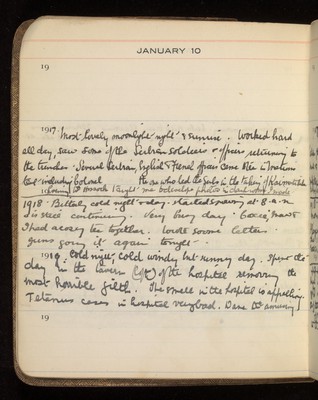 JANUARY 10
19
1917. Most lovely moonlight night & sunrise. Worked hard
all day, saw some of the Serbian soldiers & officers returning to
the trenches. Several Serbian, English & French officers came
Colonel who led the Serbs in the taking of
1918. Bitterly cold night & day. started snowing at 8 a.m.
& is still continuing. Very busy day.
& had a cosy tea together. Wrote some letters.
guns going it again tonight.
1919. Cold night, cold windy but sunny day. Spent the
day in the of the hospital removing the
most horrible filth. The smell in the hospital is appalling.
Tetanus cases in hospital very bad.
19